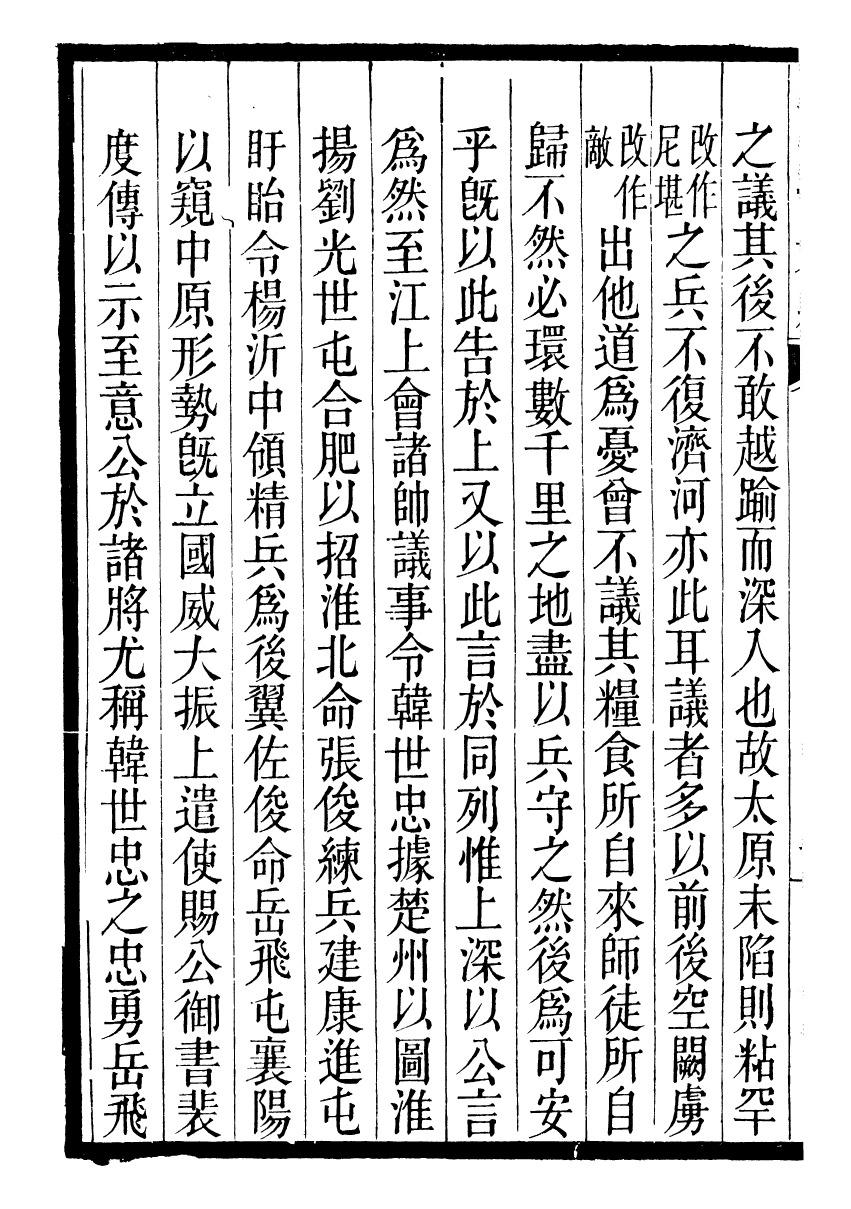 之議其後不敢越踰而深入也故太原未陷則粘罕
改作尼堪之兵不復濟河亦此耳議者多以前後空闕虜
改作敵出他道爲憂曾不議其糧食所自來師徒所自
歸不然必環數千里之地盡以兵守之然後爲可安
乎旣以此告於上又以此言於同列惟上深以公言
爲然至江上會諸帥議事令韓世忠據楚州以圖淮
揚劉光世屯合肥以招淮北命張俊練兵建康進屯
盱眙令楊沂中領精兵爲後翼佐俊命岳飛屯襄陽
以窺中原形勢旣立國威大振上遣使賜公御書裴
度傳以示至意公於諸將尤稱韓世忠之忠勇岳飛